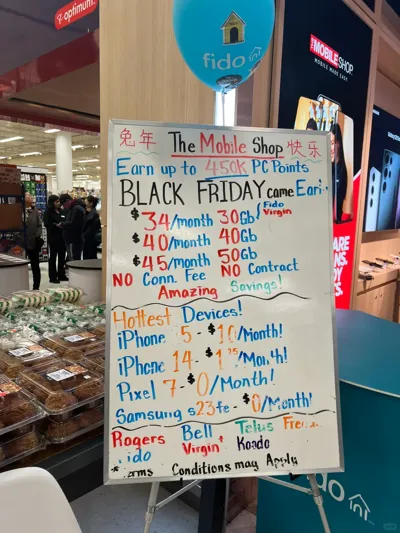 optimum
fido
THE MOBILE SHOP.
MOBILE MADE EASY.
兔年 The Mobile Shop 快乐
Earn up to 450K PC Points
BLACK FRIDAY came Earl
$34/month 30Gb { Fido Virgin
$40/month 40Gb
$45/month 50Gb
NO Conn. Fee NO Contract
Amazing Savings!
Hottest Devices!
iPhone 5 - $10/Month!
iPhone 14 -
Pixel 7 - $0/Month!
Samsung s23fe - $0/Month!
Rogers Bell Telus
ido Virgin+ Koodo
Conditions may Apply
SAMSUNG